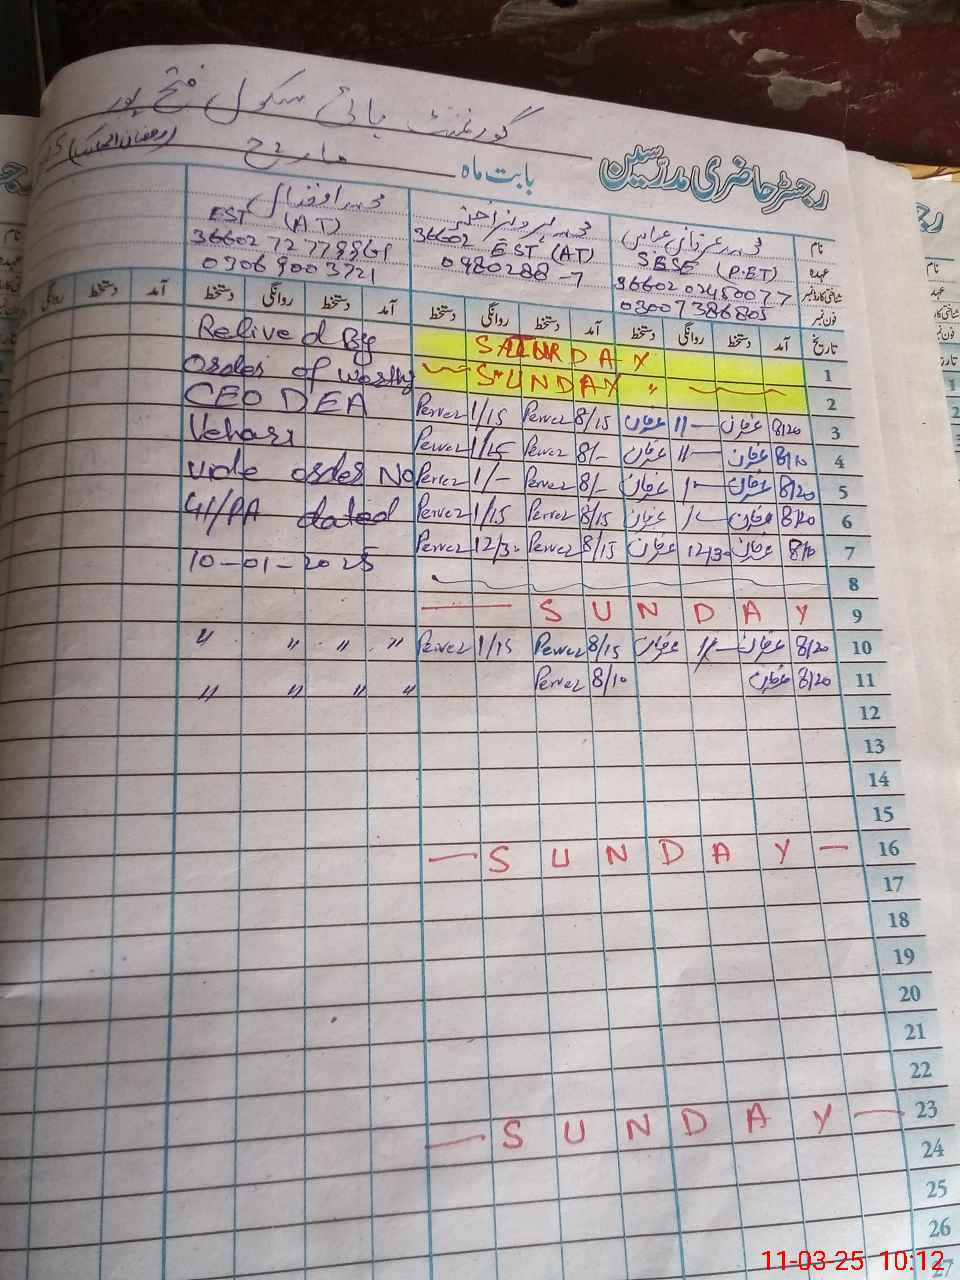 گورنمنٹ ہائی سکول فتح پور
رجسٹر حاضری مدرسین
بابت ماہ مارچ (رمضان المبارک)
نام محمد عرفان عباس محمد پرویز اختر محمد افضال
عہدہ SESE (P.ET) EST (AT) EST (AT)
شناختی کارڈ نمبر 36602 36602 72779961
فون نمبر 03007386805 0980288-7 03069003721
تاریخ آمد دستخط روانگی دستخط آمد دستخط روانگی دستخط آمد دستخط روانگی دستخط آمد دستخط روانگی
1 SATURDAY Relived By
2 SUNDAY " Orders of worthy
3 8/20 عرفان 11- عرفان 8/15 Pervez 1/15 Pervez CEO DEA
4 8/10 عرفان 11- عرفان 8/- Pervez 1/15 Pervez Vehari
5 8/20 عرفان عرفان 8/- Pervez 1/- Pervez vide order No
6 8/20 عرفان عرفان 8/15 Pervez 1/15 Pervez 41/PA dated
7 8/10 عرفان 12/30 عرفان 8/15 Pervez 12/30 Pervez 10-01-2025
8
9 SUNDAY
10 8/20 عرفان 11- عرفان 8/15 Pervez 1/15 Pervez " " " "
11 8/20 عرفان 8/10 Pervez " " " "
12
13
14
15
16 SUNDAY
17
18
19
20
21
22
23 SUNDAY
24
25
26
27
11-03-25 10:12